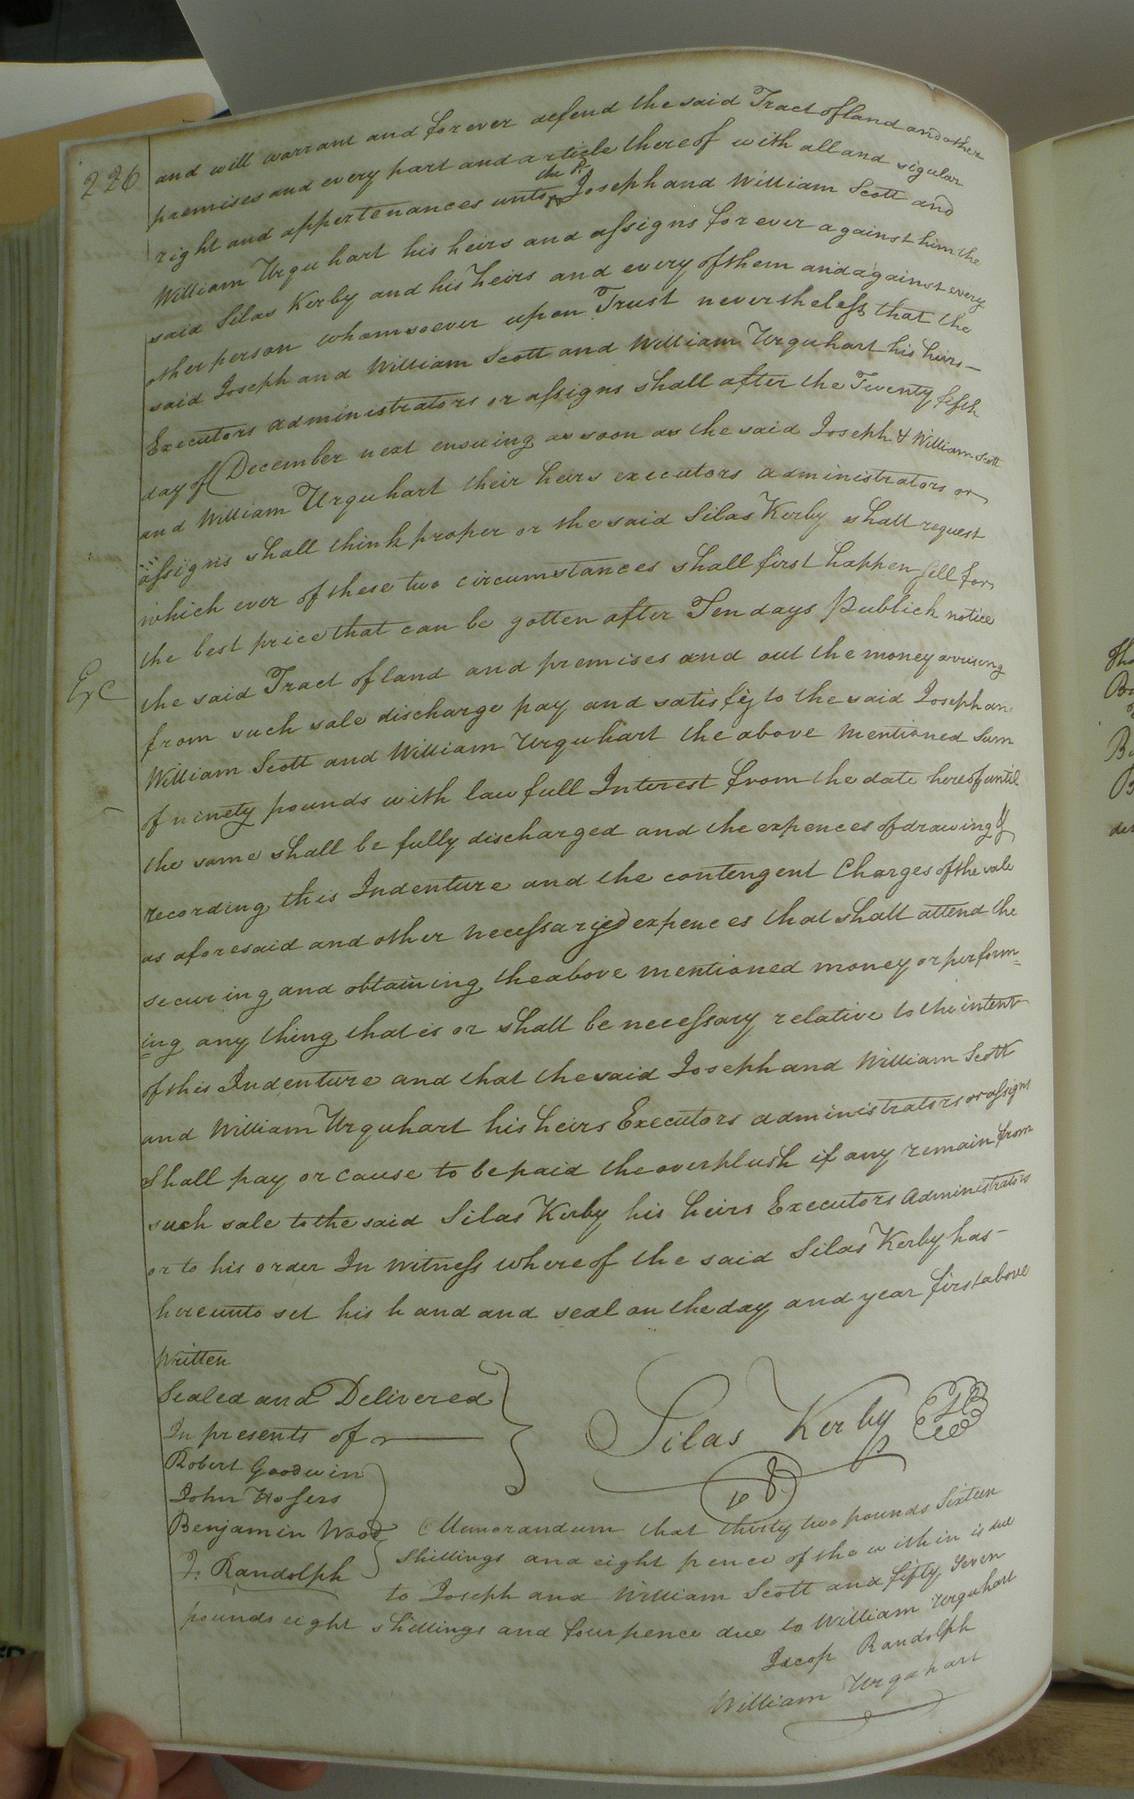 226
and will warrant and forever defend the said Tract of land and other
premises and every part and article thereof with all and sigular
right and appertenances unto the sd Joseph and William Scott and
William Urquhart his heirs and assigns forever against him the
said Silas Kerby and his heirs and every of them and against every
other person whomsoever upon Trust nevertheless that the
said Joseph and William Scott and William Urquhart his heirs
Executors administrators or assigns shall after the Twenty fifth
day of December next ensuing as soon as the said Joseph & William Scott
and William Urquhart their heirs executors administrators or
assigns shall think proper or the said Silas Kerby shall request
which ever of these two circumstances shall first happen sell for
the best price that can be gotten after Ten days Publick notice
Exc
the said Tract of land and premises and out the money arrising
from such sale discharge pay and satisfy to the said Joseph an
William Scott and William Urquhart the above mentioned Sum
of ninety pounds with lawfull Interest from the date hereof until
the same shall be fully discharged and the expences of drawing &
recording this Indenture and the contengent Charges of the sale
as aforesaid and other necessaryed expences that shall attend the
securing and obtaining the above mentioned money or perform=
=ing any thing that is or shall be necessary relative to the intent
of this Indenture and that the said Joseph and William Scott
and William Urquhart his heirs Executors administrators or assigns
Shall pay or cause to be paid the overplush if any remain from
such sale to the said Silas Kerby his heirs Executors Administrators
or to his order In Witness whereof the said Silas Kerby has
hereunto set his hand and seal on the day and year first above
Written
Sealed and Delivered
In presents of
Silas Kerby LS
Robert Goodwin
John
Benjamin Wood
Randolph
Memorandum that thirty two pounds Sixteen
Shillings and eight pence of the within is due
to Joseph and William Scott and fifty Seven
pounds eight Shillings and four pence due to William Urquhart
Randolph
William Urquhart